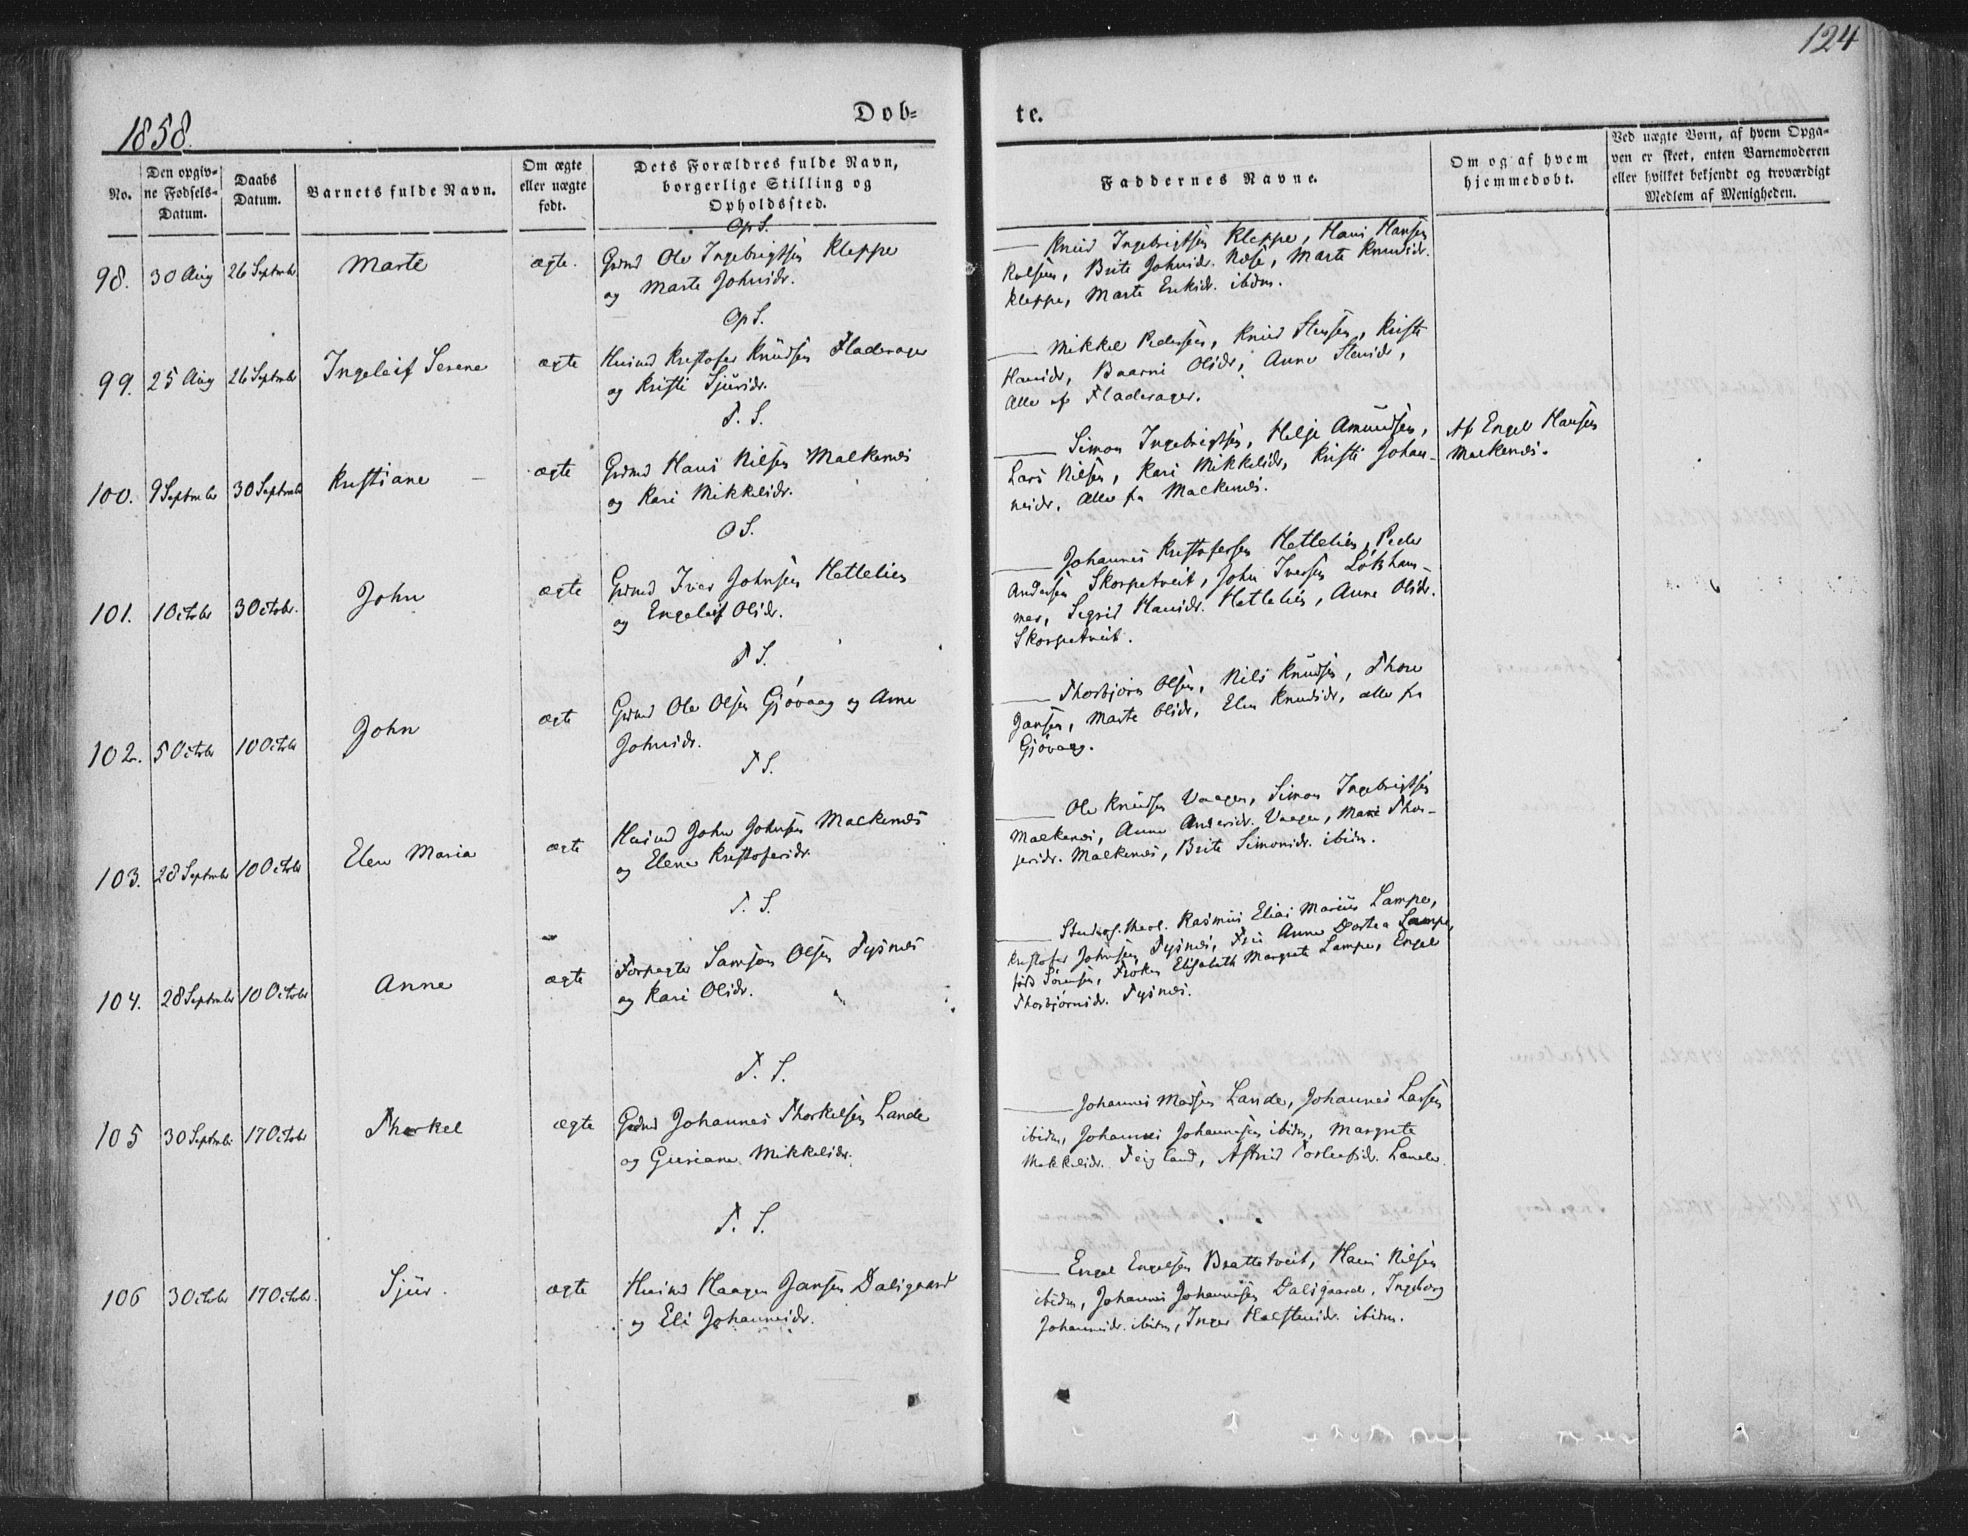 124
1858.
Døb=
te.
No.
Den opgiv-
ne Fødsels-
Datum.
Daabs
Datum.
Barnets fulde Navn.
Om ægte
eller uægte
født.
Dets Forældres fulde Navn,
borgerlige Stilling og
Opholdssted.
Faddernes Navne.
Om og af hvem
hjemmedøbt.
Ved uægte Børn, af hvem Opga-
ven er skeet, enten Barnemoderen
eller hvilket bekjendt og troværdigt
Medlem af Menigheden.
Op S.
98. 30 Aug 26 Septmbr. Marte ægte. Grmd Ole Ingebrigtsen Kleppe
og Marte Johnsdr.
Knud Ingebrigtsen Kleppe, Hans Hansen
Brite Johnsdr. Marte Knudsdr.
Kleppe, Marte Eriksdr. ibidm.
Op S.
99. 25 Aug 26 Septmbr Ingeleif Serene ægte Husmd Kristofer Knudsen Fladerager
og Kristi Sjursdr.
Mikkel Pedersen, Knud Stensen, Kristi
Hansdr, Baarni Olsdr, Anne Stensdr,
Alle af Fladerager.
T. S.
100. 9 Septmbr 30 Septmbr Kristiane ægte Grmd Hans Nilsen Malkenes
og Kari Mikkelsdr.
Simon Ingebrigtsen, Helje Amundsen,
Lars Nilsen, Kari Mikkelsdr, Kristi Johan-
nesdr, Alle fra Malkenes.
Af Engel Hansen
Malkenes.
O S.
101. 1 Octobr 3 Octobr. John ægte Grmd Iver Johnsen Hettelien
og Engeleif Olsdr.
Johannes Kristofersen Hettelien, Peder
Andersen Skorpetveit, John Iversen Løkham-
mer, Sigrid Hansdr. Hettelien, Anne Olsdr.
Skorpetveit.
T S.
102. 5 Octobr 10 Octobr John ægte Grmd Ole Olsen Gjøvaag og Anne
Johnsdr.
Thorbjørn Olsen, Nils Knudsen, Thore
Jansen, Marte Olsdr, Elen Knudsdr, alle fra
Gjøvaag.
T S.
103. 28 Septmbr 10 Octobr Elen Maria ægte Husmd John Johnsen Malkenes
og Elene Kristofersdr.
Ole Knudsen Vaagen, Simon Ingebrigtsen
Malkenes, Anne Andersdr. Vaagen, Mari Thor-
gersdr. Malkenes, Brite Simonsdr. ibidm.
T. S.
104. 28 Septmbr 10 Octobr Anne ægte Forpagter Samson Olsen Tysnes
og Kari Olsdr.
Stud. theol. Rasmus Elias Marius Lampe,
Kristofer Johnsen Tysnes, Fru Anne Dortea Lampe,
Sørensen, Frøken Elisabeth Margrete Lampe, Engel
Thorbjørnsdr. Tysnes.
T. S.
105 30 Septmbr 17 Octobr Thorkel ægte Grdmd Johannes Thorkelsen Lande
og Guriane Mikkelsdr.
Johannes Madsen Lande, Johannes Larsen
ibidm, Johannes Johannesen ibidm, Margrete
Mikkelsdr. Teigland, Astrid Torleifsdr. Lande.
T. S.
106 3 Octobr 17 Octobr. Sjur. ægte Husmd Haagen Jansen Dalsgaard
og Eli Johannesdr.
Engel Engelsen Brattetveit, Hans Nilsen
ibidm, Johannes Johannesen Dalsgaard, Ingeborg
Johannesdr. ibidm, Inger Halstensdr. ibidm.